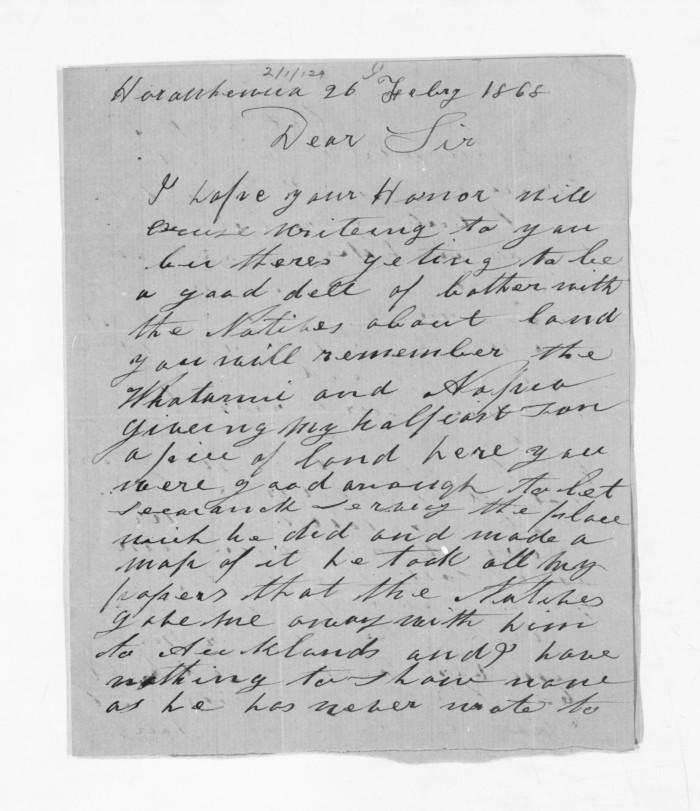 2/1/129
Horowhenua 26 Febry 1868
Dear Sir
I hope your Honor will
excuse writeing to you
but theres geting to be
a good dell of bother with
the Natives about land
you will remember the
Whatanui and
giveing my halfcast son
a piece of land here you
were good anough to let
servey the place
wich he did and made a
map of it he took all my
papers that the Natives
gave me away with him
to Aucklands and I have
nothing to show now
as he has never wrote to